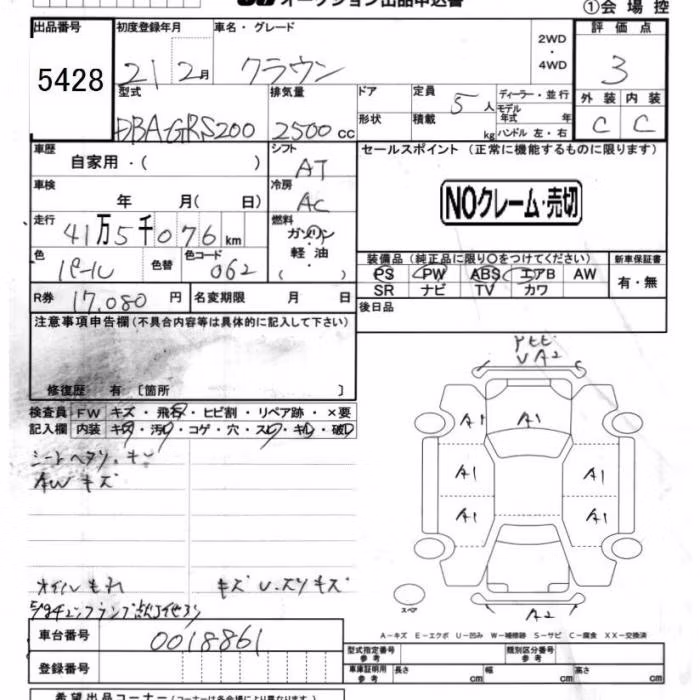 オークション出品申込書
①会場控
出品番号 初度登録年月 車名・グレード 評価点
5428 21 2月 クラウン 2WD・4WD 3
型式 排気量 ドア 定員 5人 ディーラー・並行 外装 内装
DBA-GRS200 2500cc 形状 積載 kg モデル年式 年 ハンドル 左・右 C C
車歴 シフト セールスポイント(正常に機能するものに限ります)
自家用・( ) AT
車検 冷房 NOクレーム・売切
年 月( 日) AC
走行 燃料
41万5千076km ガソリン・軽油・( )
色 色替 色コード 装備品(純正品に限り○をつけてください) 新車保証書
パール 062 PS PW ABS エアB AW 有・無
SR ナビ TV カワ
R券 17,080円 名変期限 月 日 後日品
注意事項申告欄(不具合内容等は具体的に記入して下さい)
修復歴 有[箇所 ]
検査員 FW キズ・飛石・ヒビ割・リペア跡・×要
記入欄 内装 キズ・汚・コゲ・穴・スレ・キレ・破
シートヘタリ、キレ
AWキズ
オイルもれ キズU、スリキズ
UA2
A1 A1
A1 A1
A1 A1
スペア A2
A−キズ E−エクボ U−凹み W−補修跡 S−サビ C−腐食 XX−交換済
車台番号 0018861 型式指定番号 参考 類別区分番号 参考
登録番号 車庫証明用 参考 長さ cm 幅 cm 高さ cm
希望出品コーナー